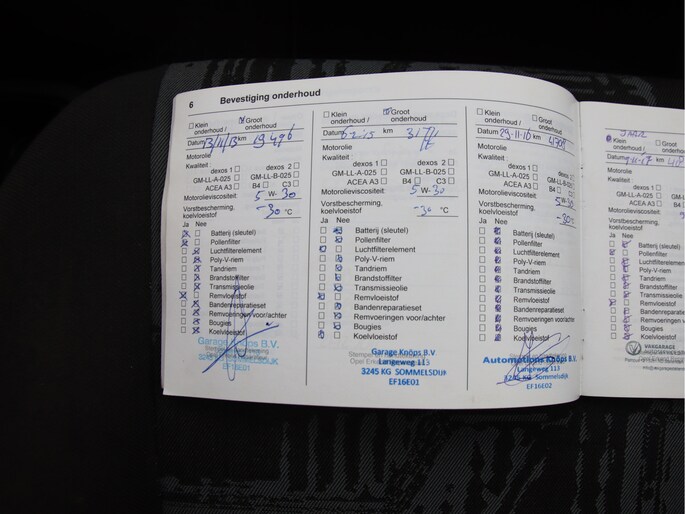 6 Bevestiging onderhoud
Klein onderhoud / Groot onderhoud
Datum 13/11/13 km
Motorolie
Kwaliteit
dexos 1 dexos 2
GM-LL-A-025 GM-LL-B-025
ACEA A3 B4 C3
Motorolieviscositeit: 5 W- 30
Vorstbescherming, koelvloeistof -30 °C
Ja Nee
Batterij (sleutel)
Pollenfilter
Luchtfilterelement
Poly-V-riem
Tandriem
Brandstoffilter
Transmissieolie
Remvloeistof
Bandenreparatieset
Remvoeringen voor/achter
Bougies
Koelvloeistof
Garage Knöps B.V.
EF16E01
Klein onderhoud / Groot onderhoud
Datum km
Motorolie
Kwaliteit
dexos 1 dexos 2
GM-LL-A-025 GM-LL-B-025
ACEA A3 B4 C3
Motorolieviscositeit: 5 W- 30
Vorstbescherming, koelvloeistof -30 °C
Ja Nee
Batterij (sleutel)
Pollenfilter
Luchtfilterelement
Poly-V-riem
Tandriem
Brandstoffilter
Transmissieolie
Remvloeistof
Bandenreparatieset
Remvoeringen voor/achter
Bougies
Koelvloeistof
Garage Knöps B.V.
Langeweg 113
3245 KG SOMMELSDIJK
EF16E01
Klein onderhoud / Groot onderhoud
Datum 29-11-16 km
Motorolie
Kwaliteit
dexos 1
GM-LL-A-025
ACEA A3 B4
Motorolieviscositeit: 5W-30
Vorstbescherming, koelvloeistof -30
Ja Nee
Batterij (sleutel)
Pollenfilter
Luchtfilterelement
Poly-V-riem
Tandriem
Brandstoffilter
Transmissieolie
Remvloeistof
Bandenreparatieset
Remvoeringen voor/achte
Bougies
Koelvloeistof
Knöps B.V.
Langeweg 113
3245 KG Sommelsdijk
EF16E02
Klein onderhoud /
Motorolie
Kwaliteit
dexos 1
GM-LL-A-025
ACEA A3
Motorolieviscositeit:
Vorstbescherming, koelvloeistof
Ja Nee
Batterij (sleutel)
Pollenfilter
Luchtfilterelement
Poly-V-riem
Tandriem
Brandstoffilter
Transmissieolie
Remvloeistof
Bandenreparat
Remvoeringen
Bougies
VAKGARAGE